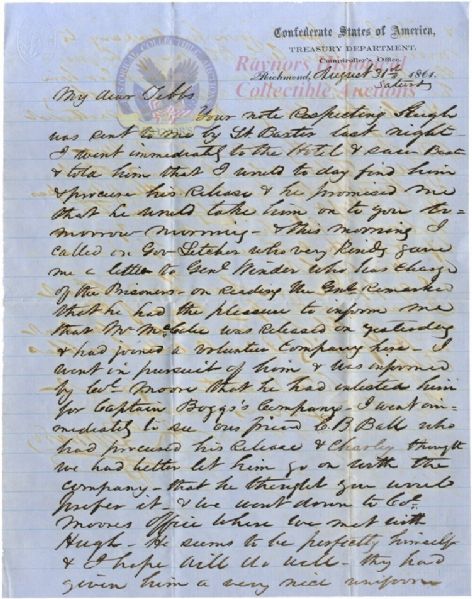 Confederate States of America,
TREASURY DEPARTMENT,
Comptroller's Office,
Richmond, August 31st 1861.
Raynors Historical
Collectible Auctions
My dear Tebbs
Your note respecting Hugh
was sent to me by Lt Baxter last night
I went immediately to the Hotel & saw
& told him that I would to day find him
& procure his release & he promised me
that he would take him on to you to-
morrow morning - & this morning I
called on Gov Letcher who very kindly gave
me a letter to Genl Winder who has charge
of the Prisoners on reading the Genl remarked
that he had the pleasure to inform me
that Mr was released on yesterday
& had joined a volunteer company here - I
went in pursuit of him & was informed
by Col. Moore that he had enlisted him
for Captain Boggs's Company - I went im-
mediately to see our friend C. B. Ball who
had procured his release & Charles thought
we had better let him go on with the
company - that he thought you would
prefer it - & we went down to Col.
Moores office where we met with
Hugh - He seems to be perfectly himself
& I hope will do well - they had
given him a very nice uniform